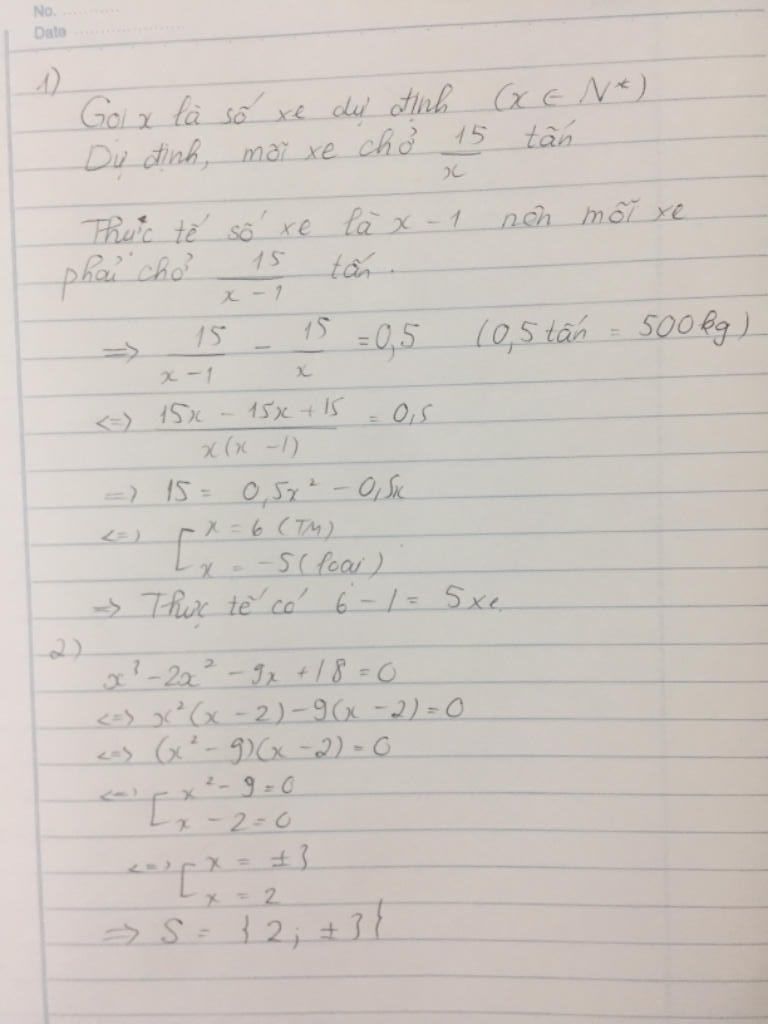 No. ............
Date ........................
1)
Gọi x là số xe dự định (x ∈ N*)
Dự định, mỗi xe chở 15/x tấn
Thực tế số xe là x - 1 nên mỗi xe
phải chở 15/(x - 1) tấn.
=> 15/(x - 1) - 15/x = 0,5 (0,5 tấn = 500kg)
<=> (15x - 15x + 15)/(x(x - 1)) = 0,5
=> 15 = 0,5x² - 0,5x
<=> [ x = 6 (TM)
x = -5 (loại)
=> Thực tế có 6 - 1 = 5 xe.
2)
x³ - 2x² - 9x + 18 = 0
<=> x²(x - 2) - 9(x - 2) = 0
<=> (x² - 9)(x - 2) = 0
<=> [ x² - 9 = 0
x - 2 = 0
<=> [ x = ±3
x = 2
=> S = {2; ±3}